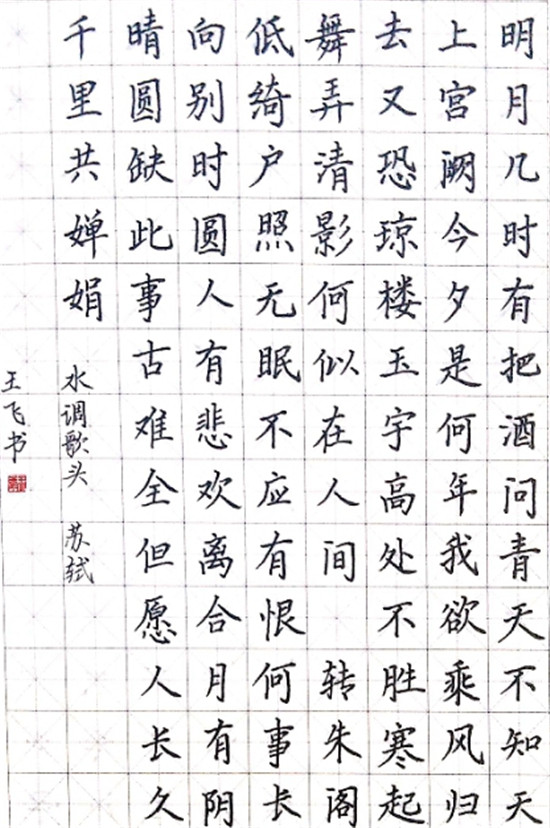 明月几时有把酒问青天不知天
上宫阙今夕是何年我欲乘风归
去又恐琼楼玉宇高处不胜寒起
舞弄清影何似在人间 转朱阁
低绮户照无眠不应有恨何事长
向别时圆人有悲欢离合月有阴
晴圆缺此事古难全但愿人长久
千里共婵娟
水调歌头 苏轼
王飞书